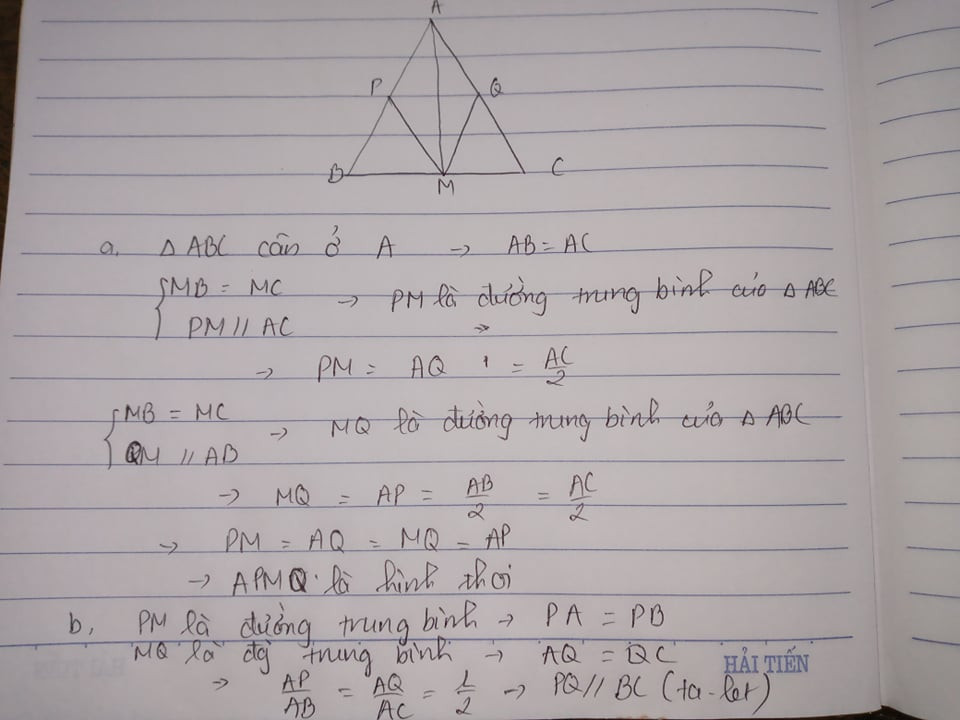 A
P Q
B M C
a. Δ ABC cân ở A → AB = AC
{ MB = MC → PM là đường trung bình của Δ ABC
PM // AC
→ PM = AQ = AC/2
{ MB = MC → MQ là đường trung bình của Δ ABC
QM // AB
→ MQ = AP = AB/2 = AC/2
→ PM = AQ = MQ = AP
→ APMQ là hình thoi
b, PM là đường trung bình → PA = PB
MQ là đg trung bình → AQ = QC
HẢI TIẾN
→ AP/AB = AQ/AC = 1/2 → PQ // BC (ta-let)